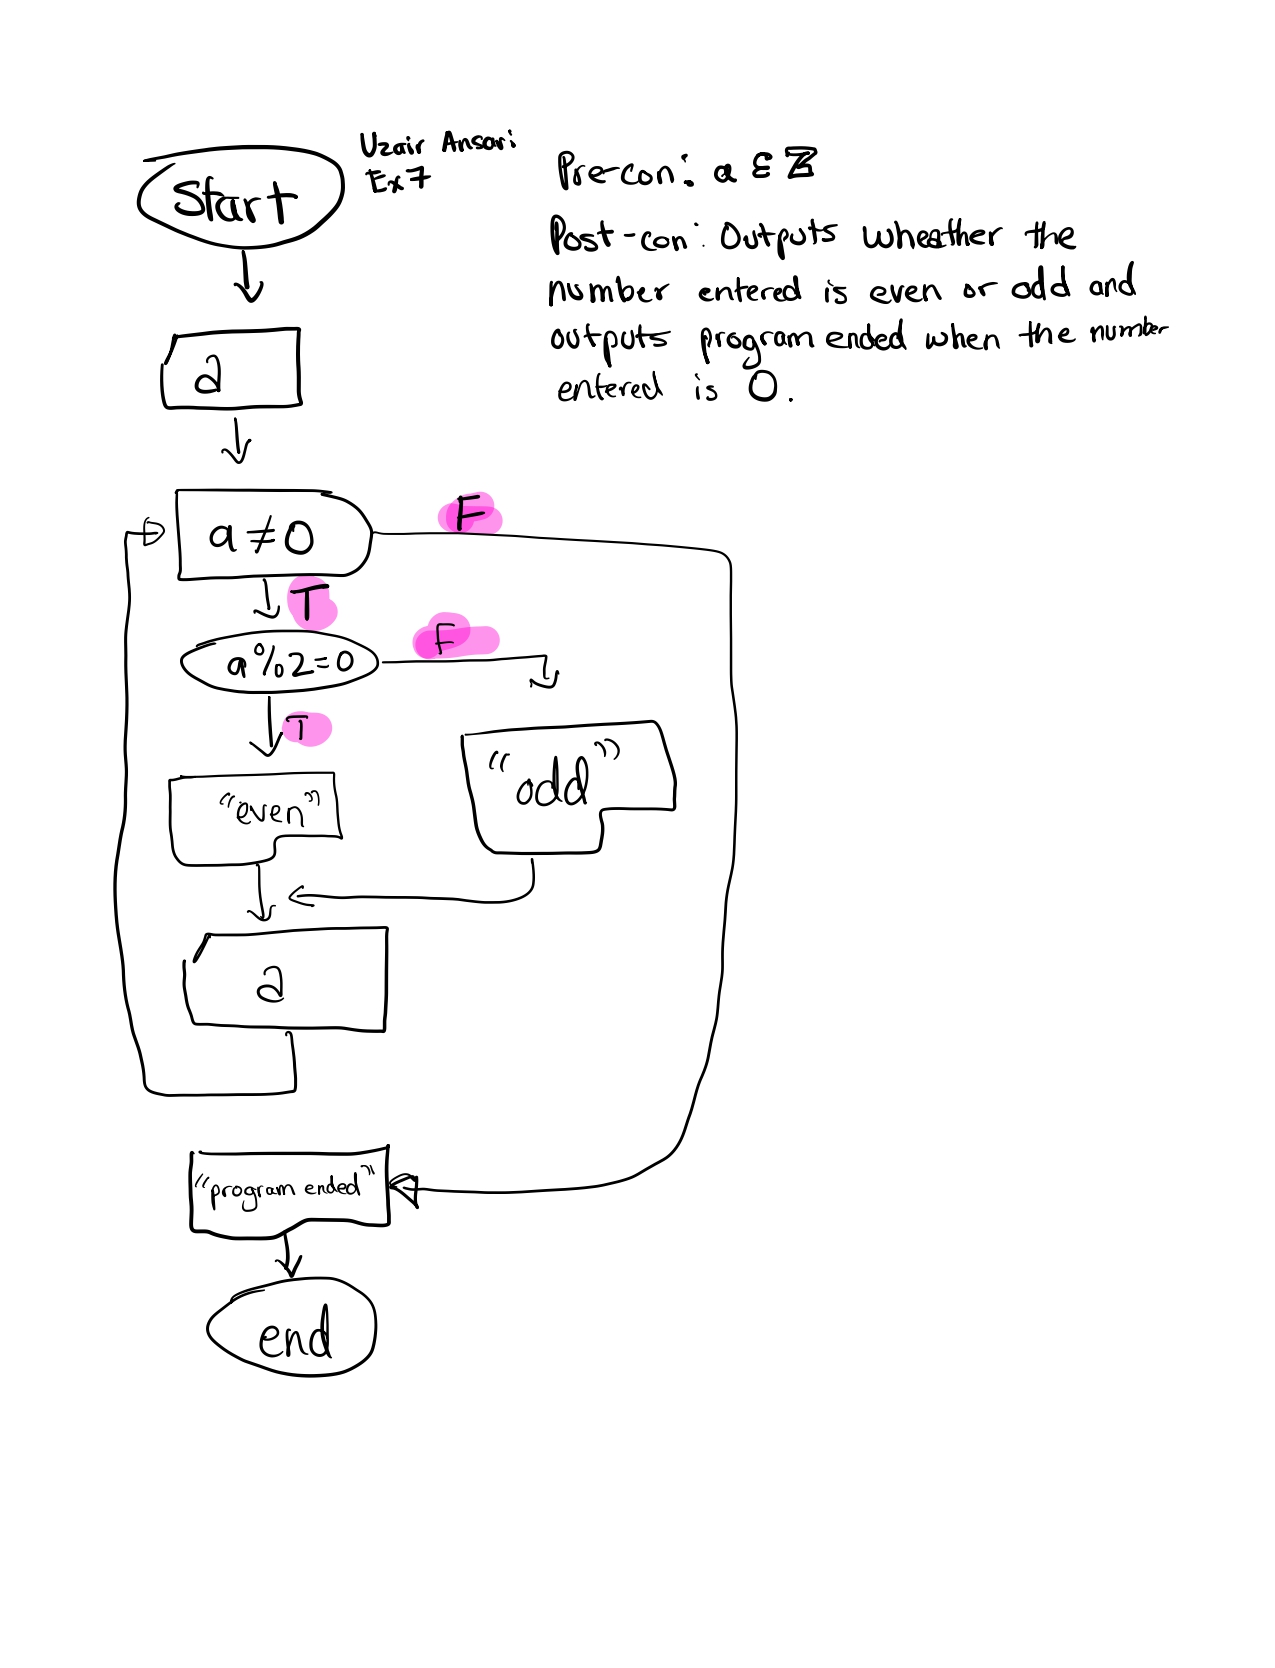 Uzair Ansari
Ex7
Start
Pre-con: a ε ℤ
Post-con: Outputs wheather the
number entered is even or odd and
outputs program ended when the number
entered is 0.
a
a ≠ 0
F
T
a%2=0
F
T
"even"
"odd"
a
"program ended"
end